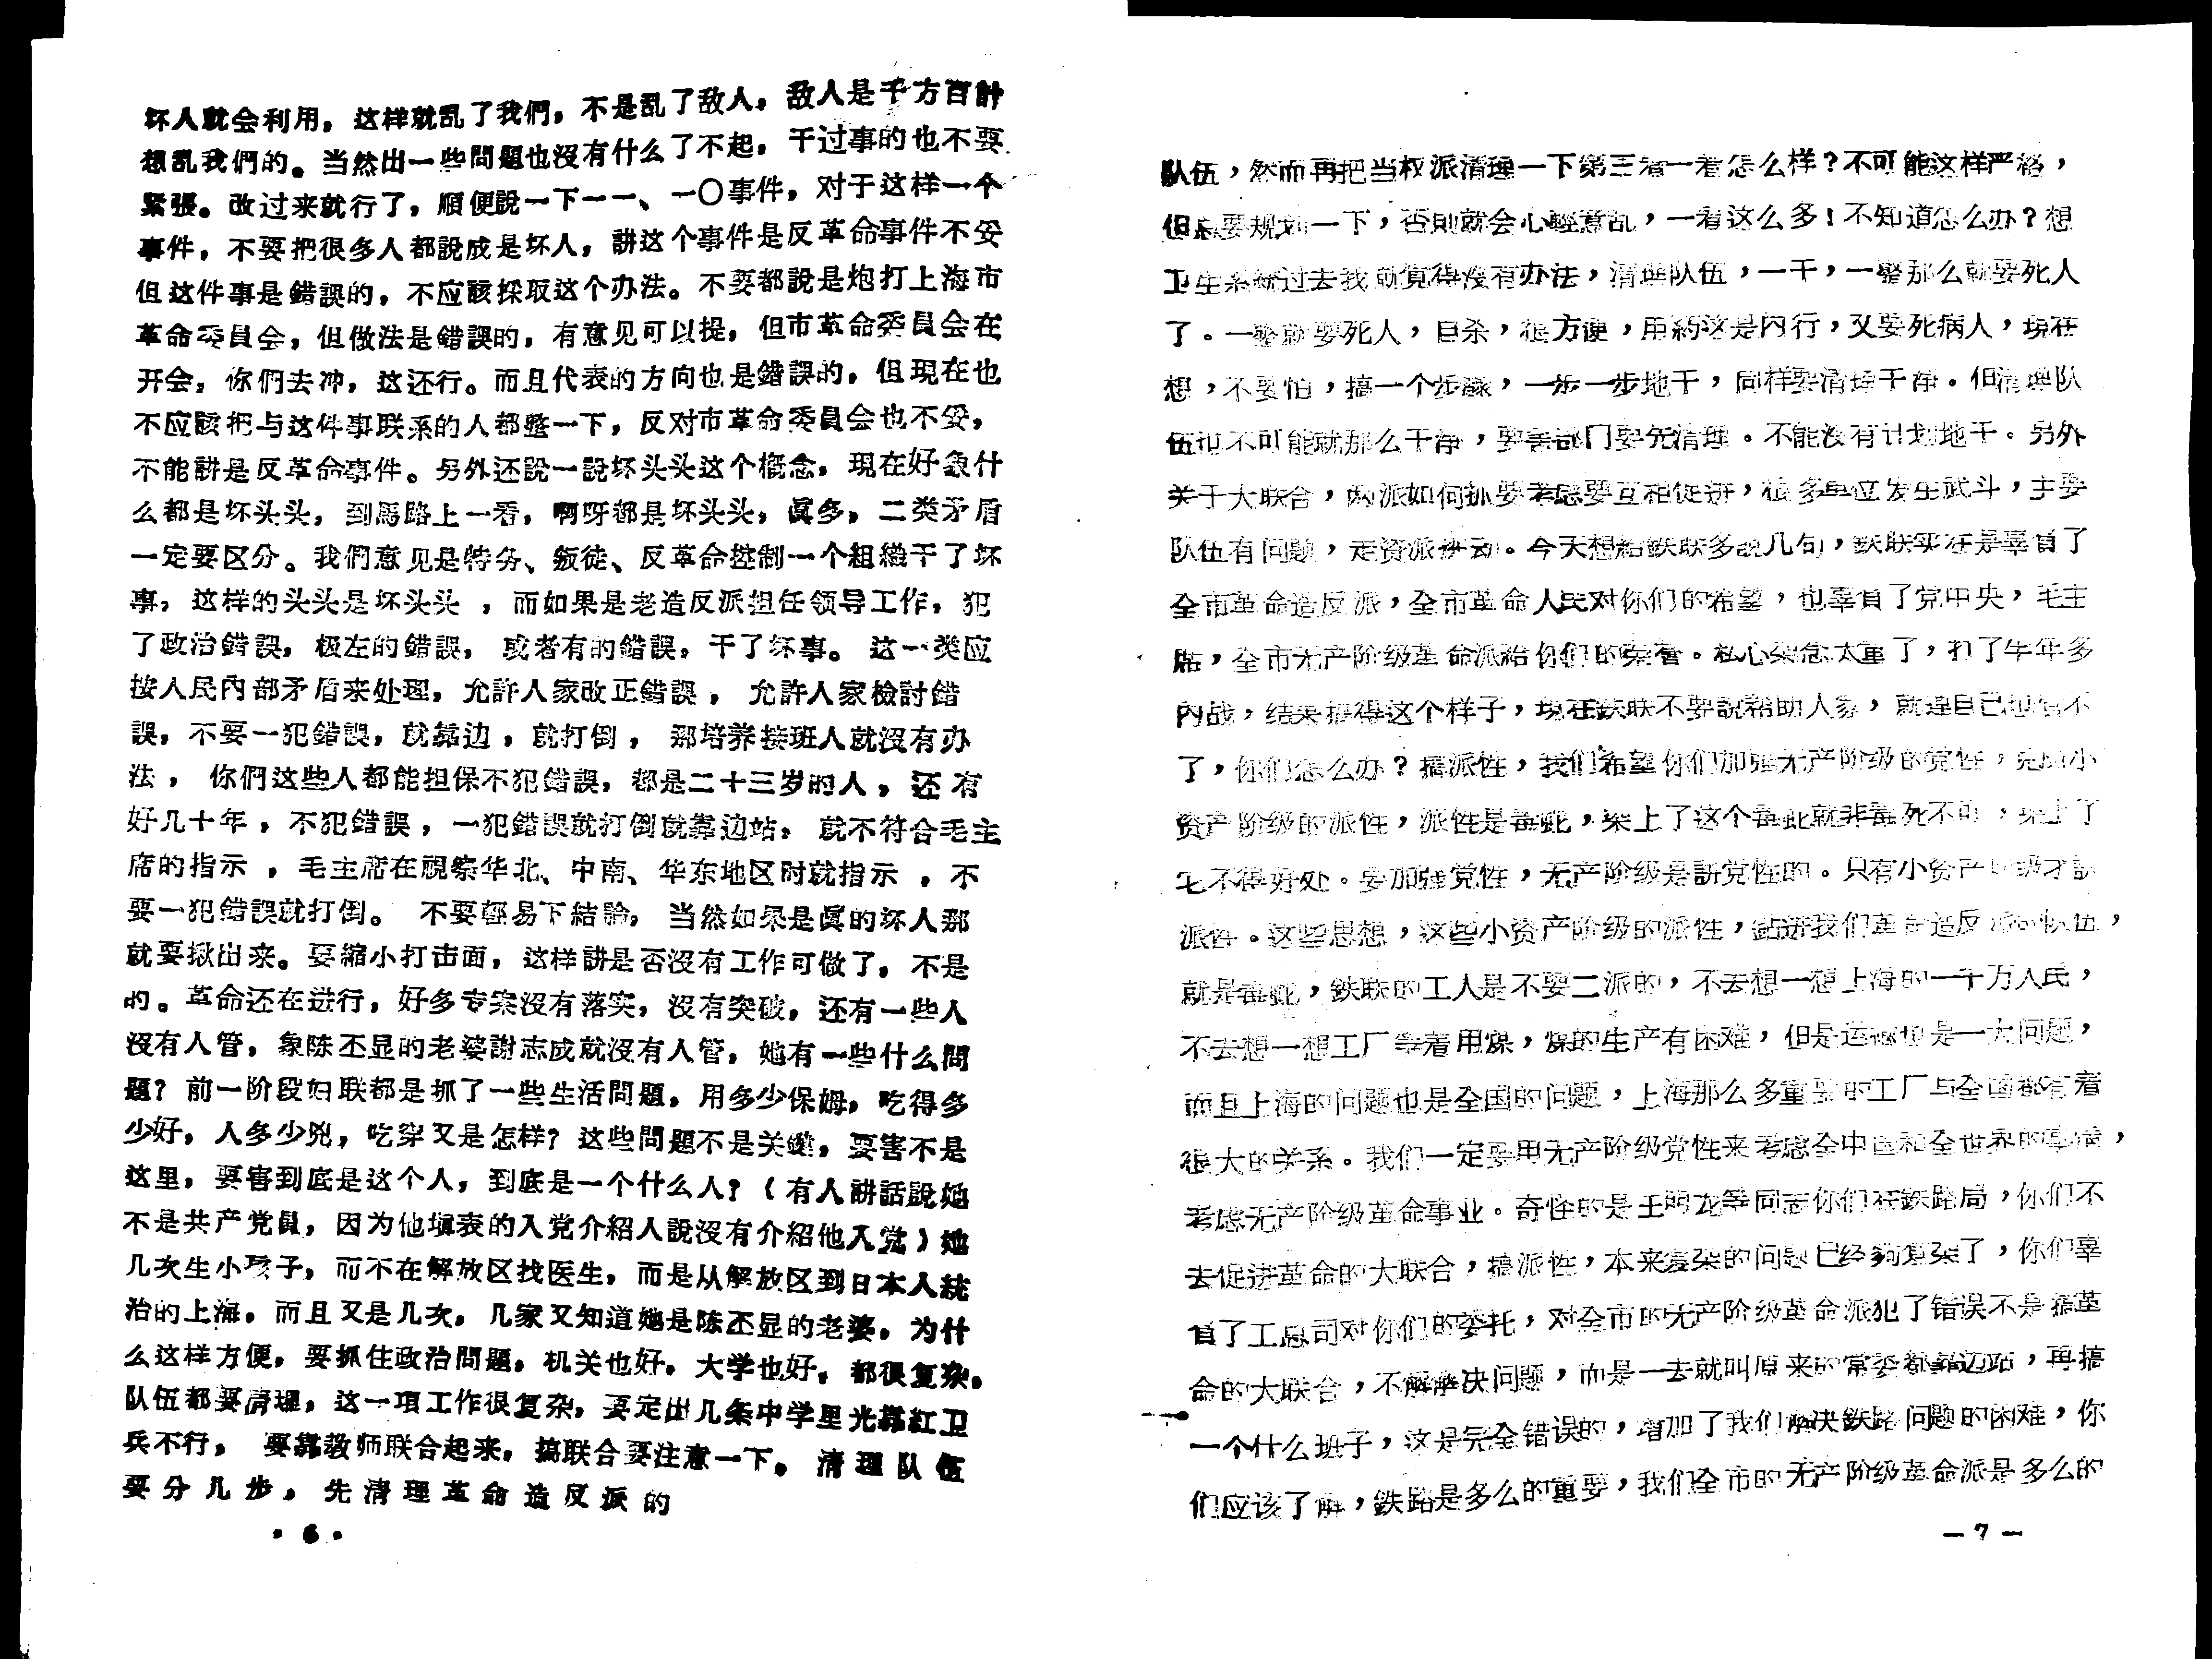 坏人就会利用，这样就乱了我們，不是乱了敌人，敌人是千方百計
想乱我們的。当然出一些問題也沒有什么了不起，干过事的也不要
緊張。改过来就行了，順便說一下一一、一〇事件，对于这样一个
事件，不要把很多人都說成是坏人，講这个事件是反革命事件不妥
但这件事是錯誤的，不应該採取这个办法。不要都說是炮打上海市
革命委員会，但做法是錯誤的，有意见可以提，但市革命委員会在
开会，你們去冲，这还行。而且代表的方向也是錯誤的，但現在也
不应該把与这件事联系的人都整一下，反对市革命委員会也不妥，
不能講是反革命事件。另外还說一說坏头头这个概念，現在好象什
么都是坏头头，到馬路上一看，啊呀都是坏头头，眞多，二类矛盾
一定要区分。我們意见是特务、叛徒、反革命控制一个組織干了坏
事，这样的头头是坏头头，而如果是老造反派担任领导工作，犯
了政治錯誤，极左的錯誤，或者有的錯誤，干了坏事。这一类应
按人民內部矛盾来处理，允許人家改正錯誤，允許人家檢討錯
誤，不要一犯錯誤，就靠边，就打倒，那培养接班人就沒有办
法，你們这些人都能担保不犯錯誤，都是二十三岁的人，还有
好几十年，不犯錯誤，一犯錯誤就打倒就靠边站，就不符合毛主
席的指示，毛主席在視察华北、中南、华东地区时就指示，不
要一犯錯誤就打倒。不要輕易下結論，当然如果是眞的坏人那
就要揪出来。要縮小打击面，这样講是否沒有工作可做了，不是
的。革命还在进行，好多专案沒有落实，沒有突破，还有一些人
沒有人管，象陈丕显的老婆謝志成就沒有人管，她有一些什么問
題？前一阶段妇联都是抓了一些生活問題，用多少保姆，吃得多
少好，人多少兇，吃穿又是怎样？这些問題不是关鍵，要害不是
这里，要害到底是这个人，到底是一个什么人？（有人講話說她
不是共产党員，因为他填表的入党介紹人說沒有介紹他入党）她
几次生小孩子，而不在解放区找医生，而是从解放区到日本人統
治的上海，而且又是几次，几家又知道她是陈丕显的老婆，为什
么这样方便，要抓住政治問題，机关也好，大学也好，都很复杂。
队伍都要清理，这一項工作很复杂，要定出几条中学里光靠紅卫
兵不行，要靠教师联合起来，搞联合要注意一下，清理队伍
要分几步，先清理革命造反派的
·6·
队伍，然而再把当权派清理一下第三看一看怎么样？不可能这样严格，
但总要规划一下，否則就会心輕意乱，一看这么多！不知道怎么办？想
卫生系統过去我就覚得沒有办法，清理队伍，一干，一整那么就要死人
了。一整就要死人，自杀，很方便，用药这是內行，又要死病人，现在
想，不要怕，搞一个步驟，一步一步地干，同样要清理干净。但清理队
伍也不可能就那么干净，要害部门要先清理。不能沒有计划地干。另外
关于大联合，两派如何抓要考虑要互相促进，很多单位发生武斗，主要
队伍有问题，走资派挑动。今天想給鉄联多說几句，鉄联实在是辜負了
全市革命造反派，全市革命人民对你们的希望，也辜負了党中央，毛主
席，全市无产阶级革命派給你们的荣誉。私心杂念太重了，打了半年多
內战，结果搞得这个样子，现在鉄联不要說帮助人家，就連自己也管不
了，你们怎么办？搞派性，我们希望你们加強无产阶级的党性，克服小
资产阶级的派性，派性是毒蛇，染上了这个毒蛇就非毒死不可，染上了
它不得好处。要加強党性，无产阶级是講党性的。只有小资产阶级才講
派性。这些思想，这些小资产阶级的派性，鉆进我们革命造反派的队伍，
就是毒蛇，鉄联的工人是不要二派的，不去想一想上海的一千万人民，
不去想一想工厂等着用煤，煤的生产有困难，但是运输也是一大问题，
而且上海的问题也是全国的问题，上海那么多重要的工厂与全国都有着
很大的关系。我们一定要用无产阶级党性来考虑全中国和全世界的事情，
考虑无产阶级革命事业。奇怪的是王明龙等同志你们在鉄路局，你们不
去促进革命的大联合，搞派性，本来复杂的问题已经夠复杂了，你们辜
負了工总司对你们的委托，对全市的无产阶级革命派犯了错误不是搞革
命的大联合，不解解决问题，而是一去就叫原来的常委都靠边站，再搞
一个什么班子，这是完全错误的，增加了我们解决鉄路问题的困难，你
们应该了解，鉄路是多么的重要，我们全市的无产阶级革命派是多么的
—7—